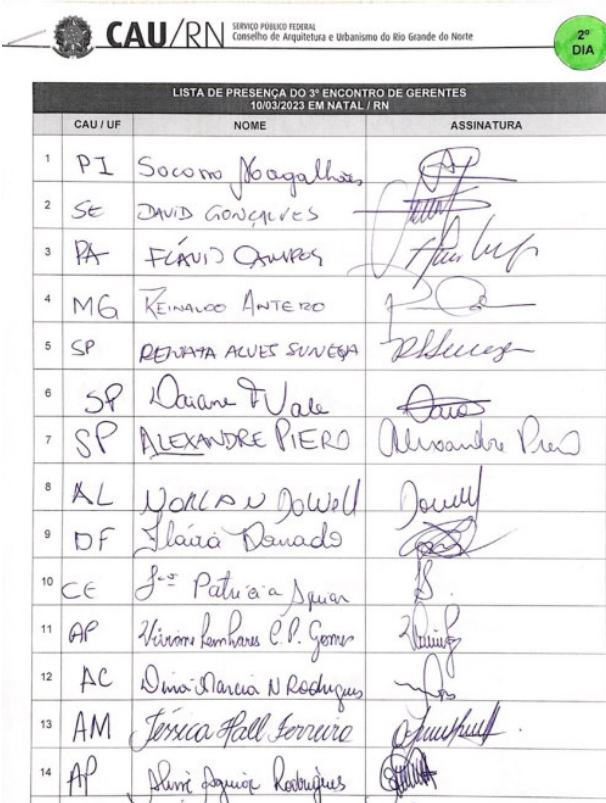 CAU/RN SERVIÇO PÚBLICO FEDERAL
Conselho de Arquitetura e Urbanismo do Rio Grande do Norte
2º
DIA
LISTA DE PRESENÇA DO 3º ENCONTRO DE GERENTES
10/03/2023 EM NATAL / RN
CAU / UF NOME ASSINATURA
1 PI Socorro Magalhães
2 SE DAVID GONÇALVES
3 PA FLÁVIO CAMPOS
4 MG REINALDO ANTERO
5 SP RENATA ALVES SUNEGA
6 SP Daiane Vale
7 SP ALEXANDRE PIERO Alexandre Piero
8 AL NORLAN DOWELL Dowell
9 DF
10 CE Patricia Aguiar
11 AP C.P. Gomes
12 AC Marcia N Rodrigues
13 AM Jéssica Hall Ferreira
14 AP Aline Aguiar Rodrigues